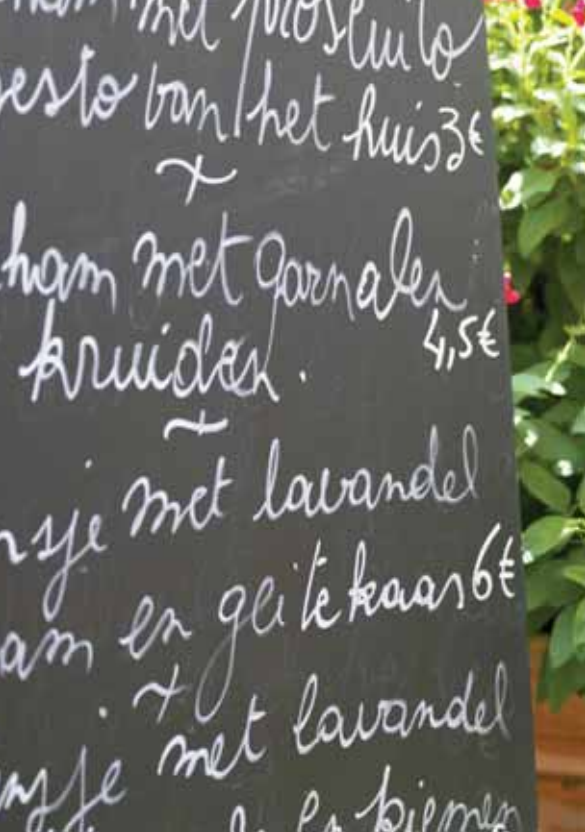 met prosciuto
pesto van het huis 3€
+
ham met garnalen
4,5€
kruiden.
~
nsje met lavandel
am en geitekaas 6€
. +
nsje met lavandel
en kiemen